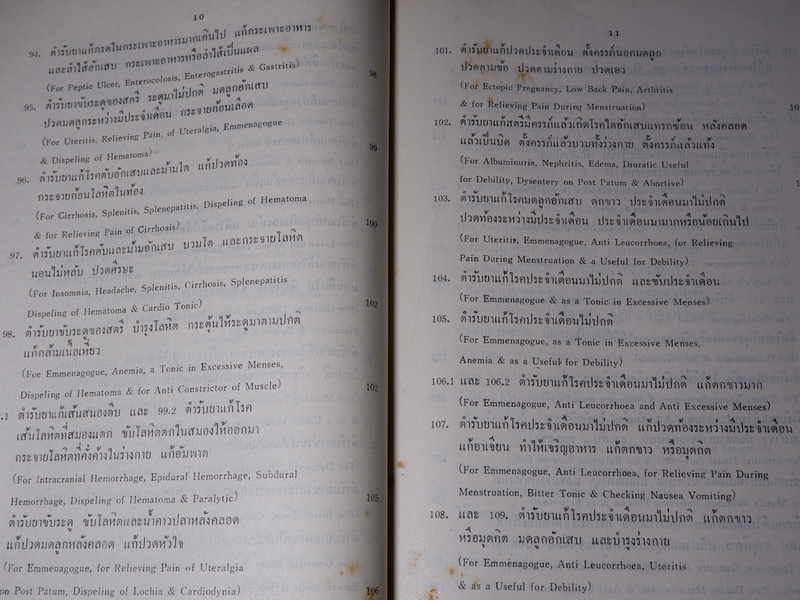 10
94. ตำรับยาแก้กรดในกระเพาะอาหารมากเกินไป แก้กระเพาะอาหาร
และลำไส้อักเสบ กระเพาะอาหารหรือลำไส้เป็นแผล
(For Peptic Ulcer, Enterocolosis, Enterogastritis & Gastritis)
98
95. ตำรับยาขับระดูของสตรี ระดูมาไม่ปกติ มดลูกอักเสบ
ปวดมดลูกระหว่างมีประจำเดือน กระจายก้อนเลือด
(For Uteritis, Relieving Pain, of Uteralgia, Emmenagogue
& Dispeling of Hematoma)
99
96. ตำรับยาแก้โรคตับอักเสบและม้ามโต แก้ปวดท้อง
กระจายก้อนโลหิตในท้อง
(For Cirrhosis, Splenitis, Splenepatitis, Dispeling of Hematoma
& for Relieving Pain of Cirrhosis)
100
97. ตำรับยาแก้โรคตับและม้ามอักเสบ บวมโต และกระจายโลหิต
นอนไม่หลับ ปวดศีรษะ
(For Insomnia, Headache, Splenitis, Cirrhosis, Splenepatitis
Dispeling of Hematoma & Cardio Tonic)
102
98. ตำรับยาขับระดูของสตรี บำรุงโลหิต กระตุ้นให้ระดูมาตามปกติ
แก้กล้ามเนื้อเหี่ยว
(Foe Emmenagogue, Anemia, a Tonic in Excessive Menses,
Dispeling of Hematoma & for Anti Constrictor of Muscle)
102
.1 ตำรับยาแก้เส้นสมองตีบ และ 99.2 ตำรับยาแก้โรค
เส้นโลหิตที่สมองแตก ขับโลหิตตกในสมองให้ออกมา
กระจายโลหิตที่คั่งค้างในร่างกาย แก้อัมพาต
(For Intracranial Hemorrhage, Epidural Hemorrhage, Subdural
Hemorrhage, Dispeling of Hematoma & Paralytic)
105
ตำรับยาขับระดู ขับโลหิตและน้ำคาวปลาหลังคลอด
แก้ปวดมดลูกหลังคลอด แก้ปวดหัวใจ
(For Emmenagogue, for Relieving Pain of Uteralgia
on Post Patum, Dispeling of Lochia & Cardiodynia)
106
11
101. ตำรับยาแก้ปวดประจำเดือน ตั้งครรภ์นอกมดลูก
ปวดตามข้อ ปวดตามร่างกาย ปวดเอว
(For Ectopic Pregnancy, Low Back Pain, Arthritis
& for Relieving Pain During Menstruation)
10
102. ตำรับยาแก้สตรีมีครรภ์แล้วเกิดโรคไตอักเสบแทรกซ้อน หลังคลอด
แล้วเป็นบิด ตั้งครรภ์แล้วบวมทั้งร่างกาย ตั้งครรภ์แล้วแท้ง
(For Albuminuria, Nephritis, Edema, Diuratic Useful
for Debility, Dysentery on Post Patum & Abortive)
1
103. ตำรับยาแก้โรคมดลูกอักเสบ ตกขาว ประจำเดือนมาไม่ปกติ
ปวดท้องระหว่างมีประจำเดือน ประจำเดือนมามากหรือน้อยเกินไป
(For Uteritis, Emmenagogue, Anti Leucorrhoea, for Relieving
Pain During Menstruation & a Useful for Debility)
104. ตำรับยาแก้โรคประจำเดือนมาไม่ปกติ และขับประจำเดือน
(For Emmenagogue & as a Tonic in Excessive Menses)
105. ตำรับยาแก้โรคประจำเดือนไม่ปกติ
(For Emmenagogue, as a Tonic in Excessive Menses,
Anemia & as a Useful for Debility)
106.1 และ 106.2 ตำรับยาแก้โรคประจำเดือนมาไม่ปกติ แก้ตกขาวมาก
(For Emmenagogue, Anti Leucorrhoea and Anti Excessive Menses)
107. ตำรับยาแก้โรคประจำเดือนมาไม่ปกติ แก้ปวดท้องระหว่างมีประจำเดือน
แก้อาเจียน ทำให้เจริญอาหาร แก้ตกขาว หรือมุตกิต
(For Emmenagogue, Anti Leucorrhoea, for Relieving Pain During
Menstruation, Bitter Tonic & Checking Nausea Vomiting)
108. และ 109. ตำรับยาแก้โรคประจำเดือนมาไม่ปกติ แก้ตกขาว
หรือมุตกิต มดลูกอักเสบ และบำรุงร่างกาย
(For Emmenagogue, Anti Leucorrhoea, Uteritis
& as a Useful for Debility)